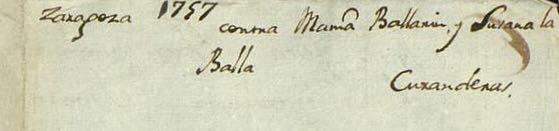 Zaragoza 1757
contra Mamã Ballarin, y Susana la
Balla
Curanderas.